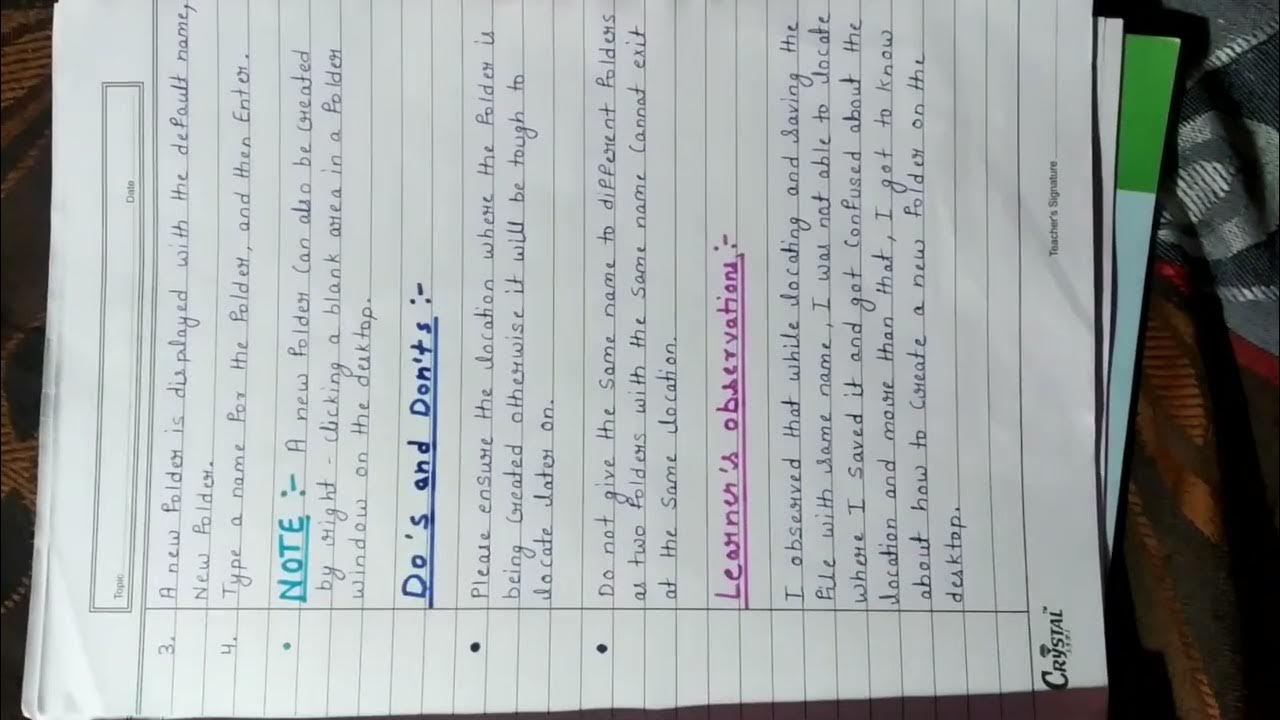 Topic
Date
3. A new folder is displayed with the default name,
New folder.
4. Type a name for the folder, and then Enter.
• NOTE :- A new folder can also be created
by right - clicking a blank area in a folder
window on the desktop.
Do's and Don'ts :-
• Please ensure the location where the folder is
being created otherwise it will be tough to
locate later on.
• Do not give the same name to different folders
as two folders with the same name cannot exit
at the same location.
Learner's observations :-
I observed that while locating and saving the
file with same name, I was not able to locate
where I saved it and got confused about the
location and more than that, I got to know
about how to create a new folder on the
desktop.
CRYSTAL™
Teacher's Signature